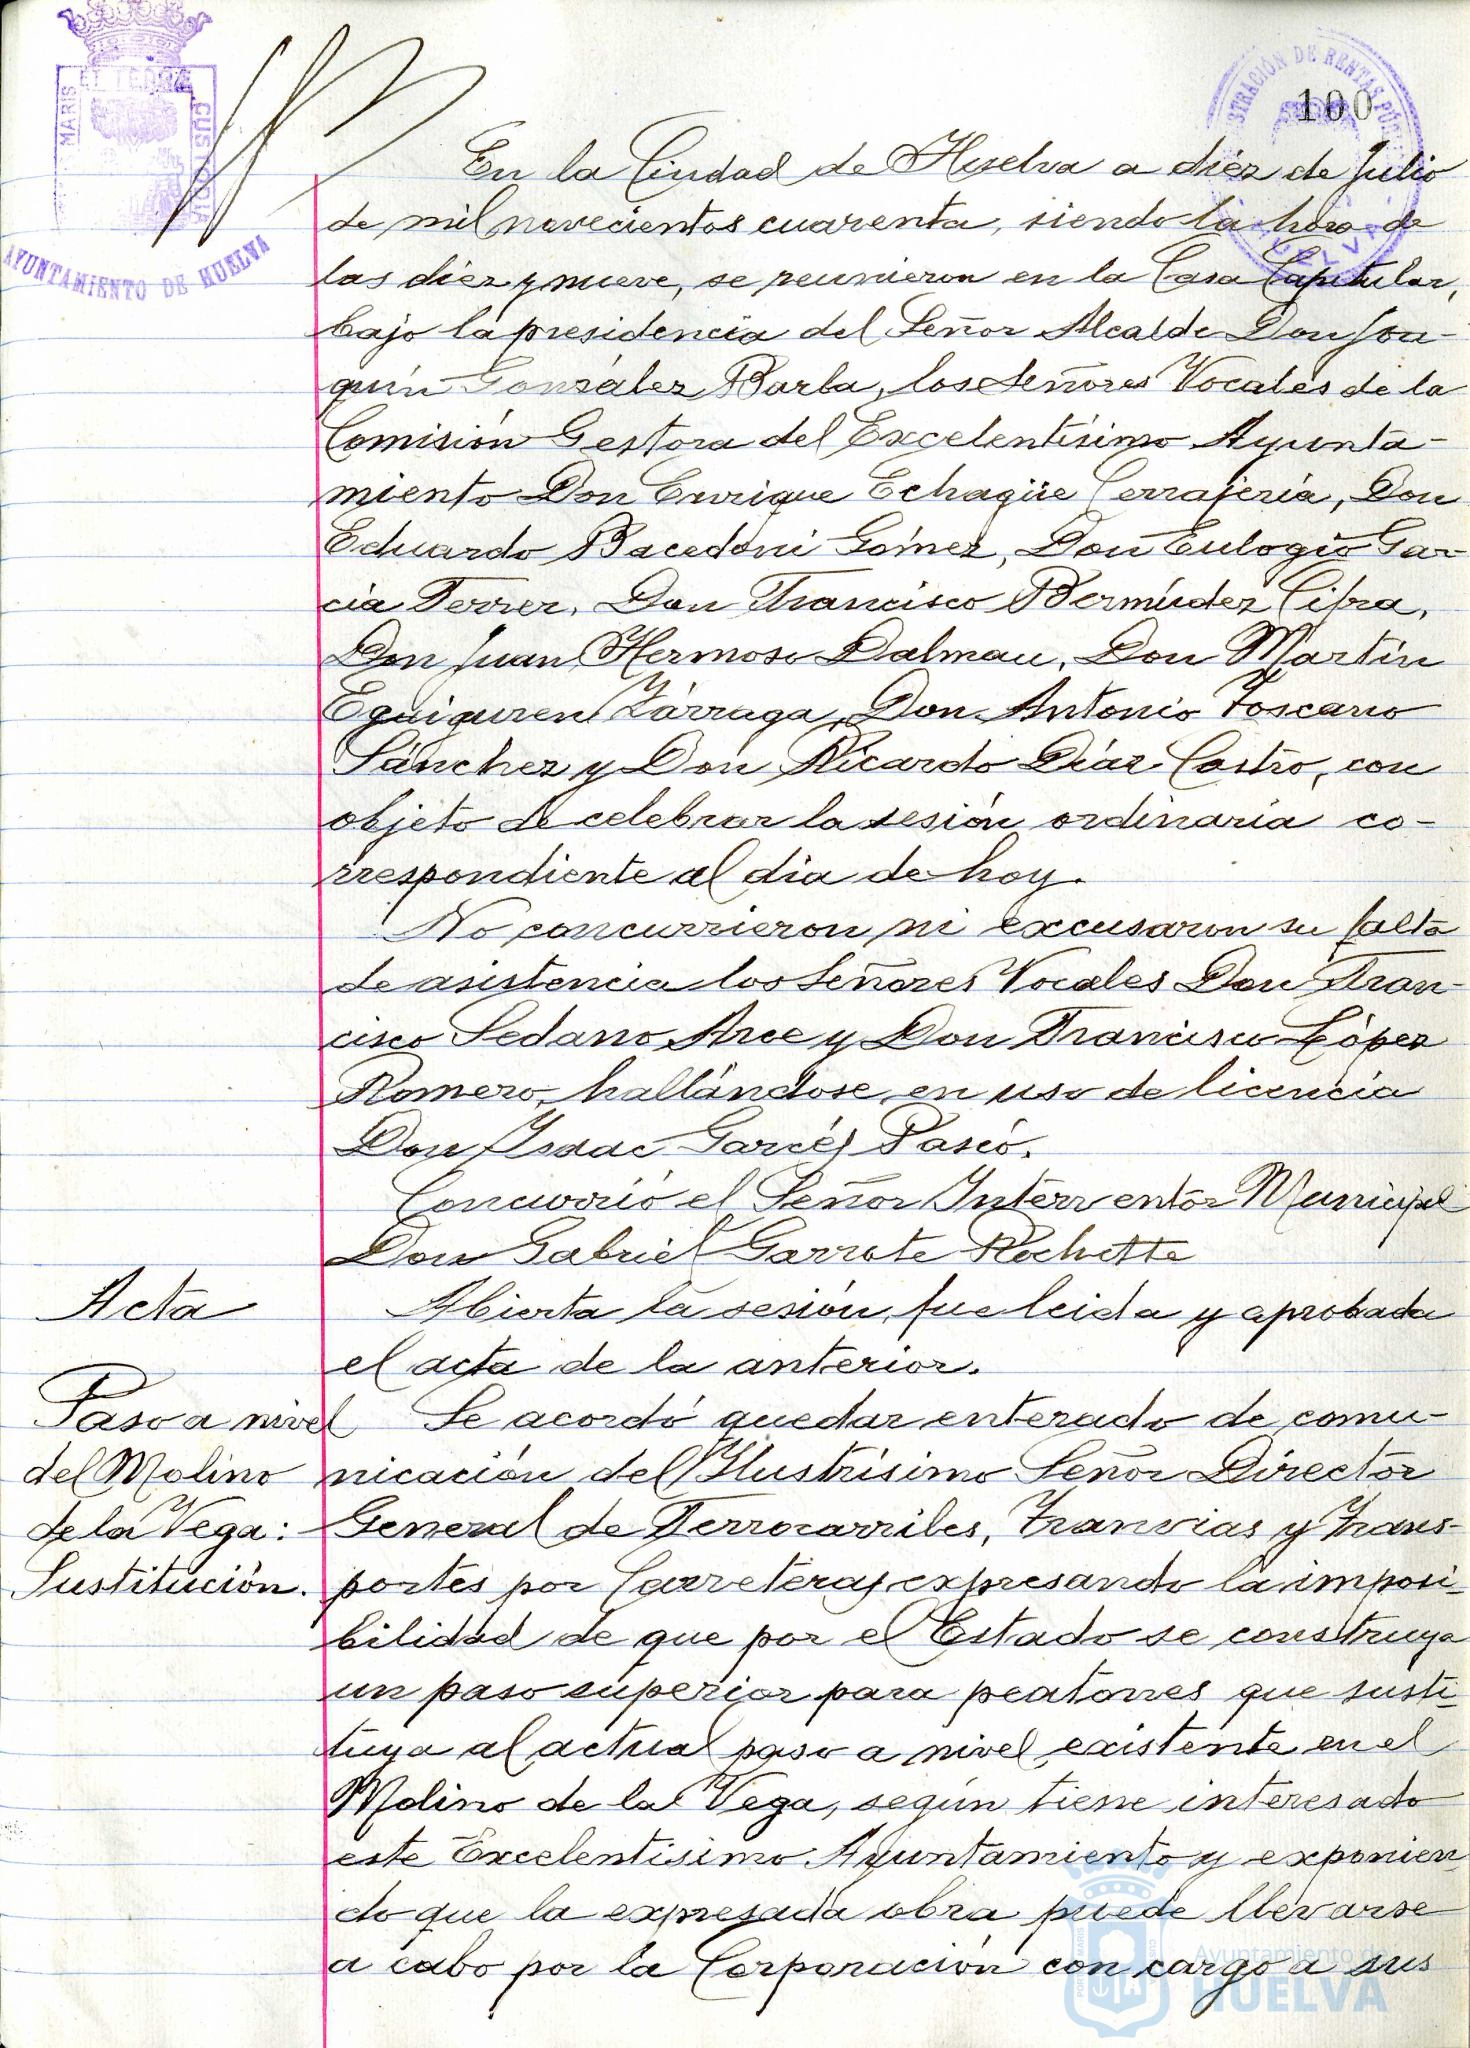 MARIS
ET TERRE
CUSTODIA
AYUNTAMIENTO DE HUELVA
STRACIÓN DE RENTAS PÚB
HUELVA
100
En la Ciudad de Huelva a diez de Julio
de mil novecientos cuarenta, siendo la hora de
las diez y nueve, se reunieron en la Casa Capitular,
bajo la presidencia del Señor Alcalde Don Joa-
quín González Barba, los Señores Vocales de la
Comisión Gestora del Excelentísimo Ayunta-
miento Don Enrique Echagüe Cerrajería, Don
Eduardo Bacedoni Gómez, Don Eulogio Gar-
cia Ferrer, Don Francisco Bermúdez Cifra,
Don Juan Hermoso Dalmau, Don Martín
Eguiguren Zárraga, Don Antonio Toscano
Sánchez y Don Ricardo Díaz Castro, con
objeto de celebrar la sesión ordinaria co-
rrespondiente al día de hoy.
No concurrieron ni excusaron su falta
de asistencia los Señores Vocales Don Fran-
cisco Sedano Arce y Don Francisco López
Romero, hallándose en uso de licencia
Don Isaac Garcés Pascó.
Concurrió el Señor Interventor Municipal
Don Gabriel Garrote Rochette
Acta
Abierta la sesión, fue leida y aprobada
el acta de la anterior.
Paso a nivel
del Molino
de la Vega:
Sustitución.
Se acordó quedar enterado de comu-
nicación del Ilustrísimo Señor Director
General de Ferrocarriles, Tranvias y Trans-
portes por Carretera, expresando la imposi-
bilidad de que por el Estado se construya
un paso superior para peatones que susti-
tuya al actual paso a nivel existente en el
Molino de la Vega, según tiene interesado
este Excelentísimo Ayuntamiento y exponien
do que la expresada obra puede llevarse
a cabo por la Corporación con cargo a sus
Ayuntamiento de
HUELVA